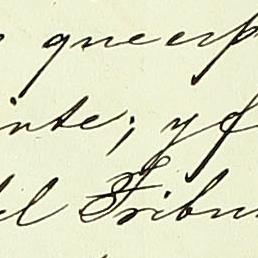 queerp
inte; y f
del Tribu